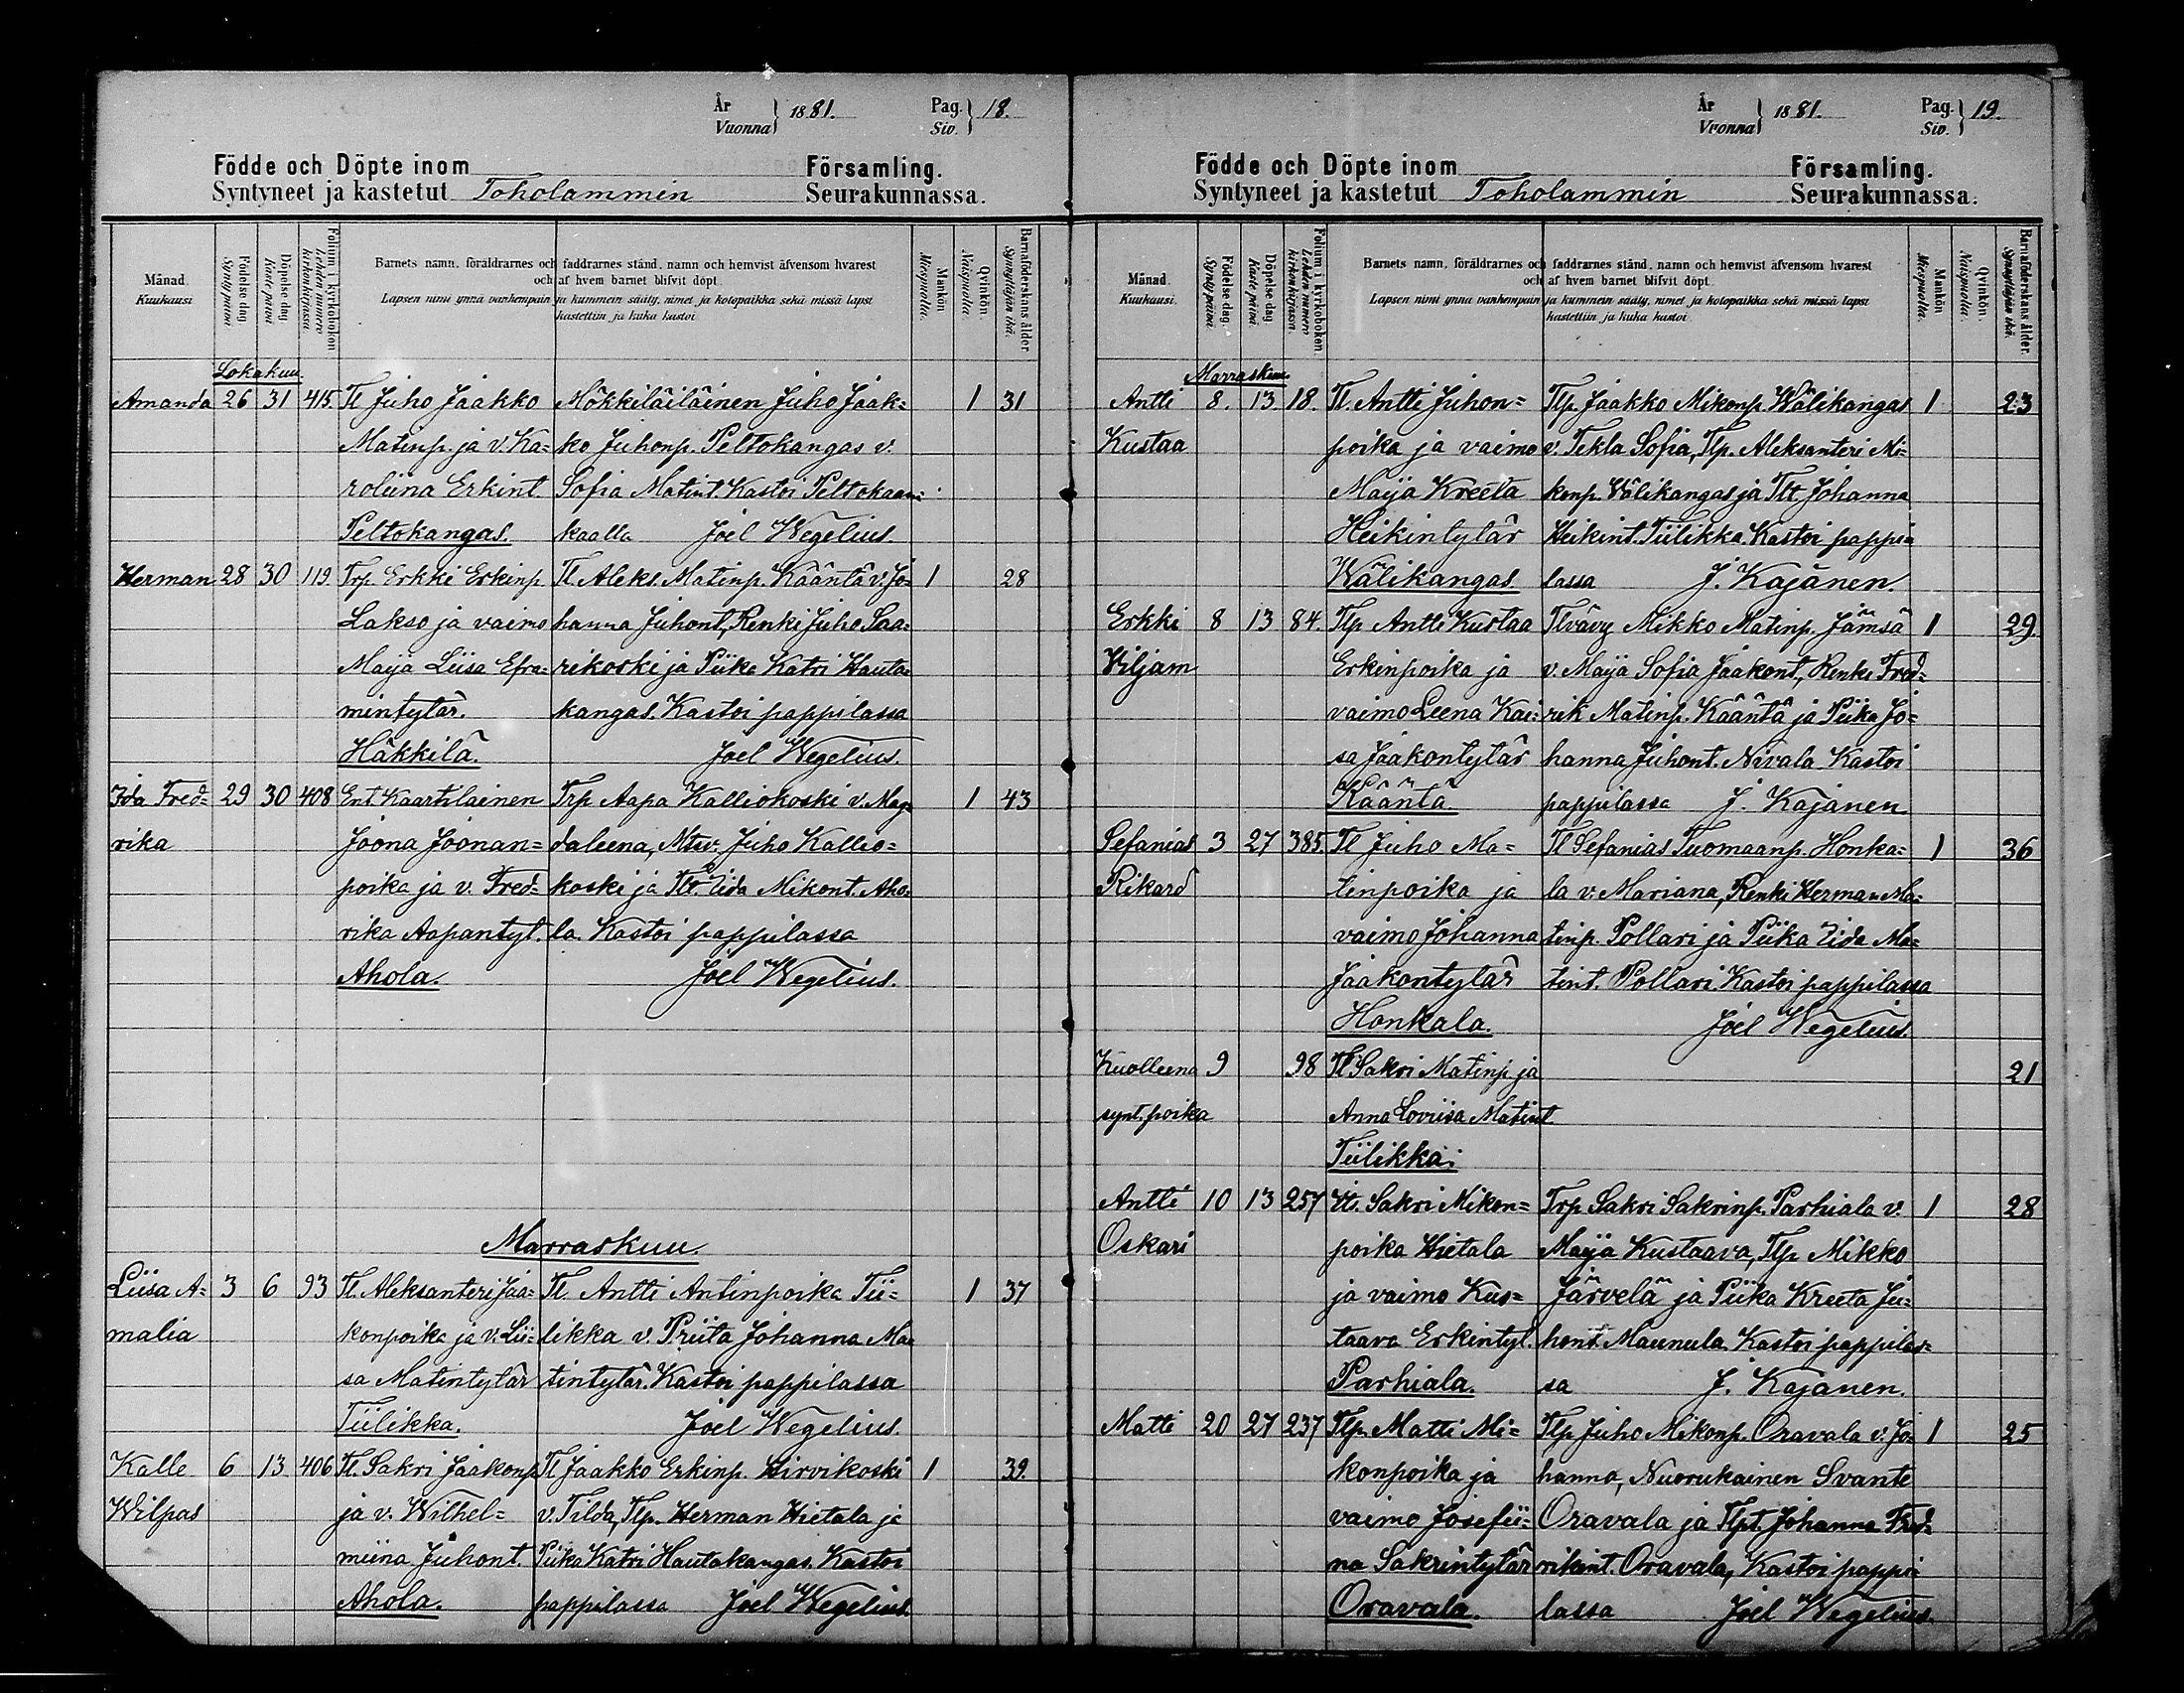 År
Vuonna } 1881.
Pag.
Siv. } 18.
Födde och Döpte inom Församling.
Syntyneet ja kastetut Toholammin Seurakunnassa.
Månad
Kuukausi
Födelse dag
Synty päivä
Döpelse dag
Kaste päivä
Folium i kyrkoboken
Lehden numero kirkonkirjassa
Barnets namn, föräldrarnes och faddrarnes stånd, namn och hemvist äfvensom hvarest
och af hvem barnet blifvit döpt.
Lapsen nimi ynnä vanhempain ja kummein sääty, nimet ja kotopaikka sekä missä lapsi
kastettiin ja kuka kastoi
Mankön
Miespuolia.
Qvinkön.
Naispuolia.
Barnaföderskans ålder
Synnyttäjän ikä.
Lokakuu
Amanda 26 31 415. Tl Juho Jaakko Mökkiläiläinen Juho Jaak= 1 31
Matinp. ja v. Ka= ko Juhonp. Peltokangas v.
roliina Erkint. Sofia Matint. Kastoi Peltokan=
Peltokangas. kaalla Joel Wegelius.
Herman 28 30 119. Trp. Erkki Erkinp. Tl Aleks. Matinp. Kääntä v. Jo= 1 28
Lakso ja vaimo hanna Juhont, Renki Juho Saa=
Maija Liisa Efra= rikoski ja Piika Katri Hauta=
mintytär. kangas. Kastoi pappilassa
Häkkilä. Joel Wegelius.
Ida Fred= 29 30 408 Ent. Kaartilainen Trp Aapa Kalliokoski v. Mag= 1 43
rika Joona Joonan= daleena, Ntsv. Juho Kallio=
poika ja v. Fred= koski ja Tlt. Iida Mikont. Aho=
rika Aapantyt. la. Kastoi pappilassa
Ahola. Joel Wegelius.
Marraskuu.
Liisa A= 3 6 93 Tl. Aleksanteri Jaa= Tl. Antti Antinpoika Tii= 1 37
malia konpoika ja v. Lii= likka v. Priita Johanna Ma=
sa Matintytär tintytär. Kastoi pappilassa
Tiilikka. Joel Wegelius.
Kalle 6 13 406 Tl. Sakri Jaakonp. Tl Jaakko Erkinp. Hirvikoski 1 39.
Wilpas ja v. Wilhel= v. Tilda, Tlp. Herman Hietala ja
miina Juhont. Piika Katri Hautakangas. Kastoi
Ahola. pappilassa Joel Wegelius.
År
Vuonna } 1881.
Pag.
Siv. } 19.
Födde och Döpte inom Församling.
Syntyneet ja kastetut Toholammin Seurakunnassa.
Månad
Kuukausi.
Födelse dag.
Synty päivä.
Döpelse dag
Kaste päivä.
Folium i kyrkoboken.
Lehden numero kirkonkirjassa.
Barnets namn, föräldrarnes och faddrarnes stånd, namn och hemvist äfvensom hvarest
och af hvem barnet blifvit döpt.
Lapsen nimi ynnä vanhempain ja kummein sääty, nimet ja kotopaikka sekä missä lapsi
kastettiin ja kuka kastoi.
Mankön
Miespuolia.
Qvinkön.
Naispuolia.
Barnaföderskans ålder.
Synnyttäjän ikä.
Marraskuu
Antti 8. 13 18. Tl. Antti Juhon= Tlp. Jaakko Mikonp. Wälikangas 1 23
Kustaa poika ja vaimo v. Tekla Sofia, Tlp. Aleksanteri Mi=
Maija Kreeta konp. Wälikangas ja Tlt. Johanna
Heikintytär Heikint. Tiilikka. Kastoi pappi=
Wälikangas. lassa J. Kajanen.
Erkki 8 13 84. Tlp Antti Kustaa Tlvävy Mikko Matinp. Jämsä 1 29.
Viljam Erkinpoika ja v. Maija Sofia Jaakont., Renki Fred=
vaimo Leena Kai= rik Matinp. Kääntä ja Piika Jo=
sa Jaakontytär hanna Juhont. Nivala. Kastoi
Kääntä pappilassa J. Kajanen.
Sefanias 3 27 385. Tl Juho Ma= Tl Sefanias Tuomaanp. Honka= 1 36
Rikard tinpoika ja la v. Mariana, Renki Herman Ma=
vaimo Johanna tinp. Pollari ja Piika Iida Ma=
Jaakontytär tint. Pollari. Kastoi pappilassa
Honkala. Joel Wegelius.
Kuolleena 9 98 Tl Sakri Matinp. ja 21
synt. poika Anna Loviisa Matint.
Tiilikka.
Antti 10 13 257 Its. Sakri Mikon= Trp Sakri Sakrinp. Parhiala v. 1 28
Oskari poika Hietala Maija Kustaava, Tlp. Mikko
ja vaimo Kus= Järvelä ja Piika Kreeta Ju=
taava Erkintyt. hont. Maunula. Kastoi pappilas=
Parhiala. sa J. Kajanen.
Matti 20 27 237 Tlp. Matti Mi= Tlp. Juho Mikonp. Oravala v. Jo= 1 25
konpoika ja hanna, Nuorukainen Svante
vaimo Josefii= Oravala ja Tlpt. Johanna Fred=
na Sakrintytär rikint. Oravala, Kastoi pappi
Oravala. lassa Joel Wegelius.